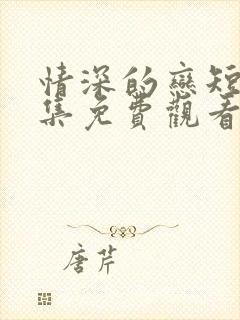 情深的戀短
集免費觀看
唐芹